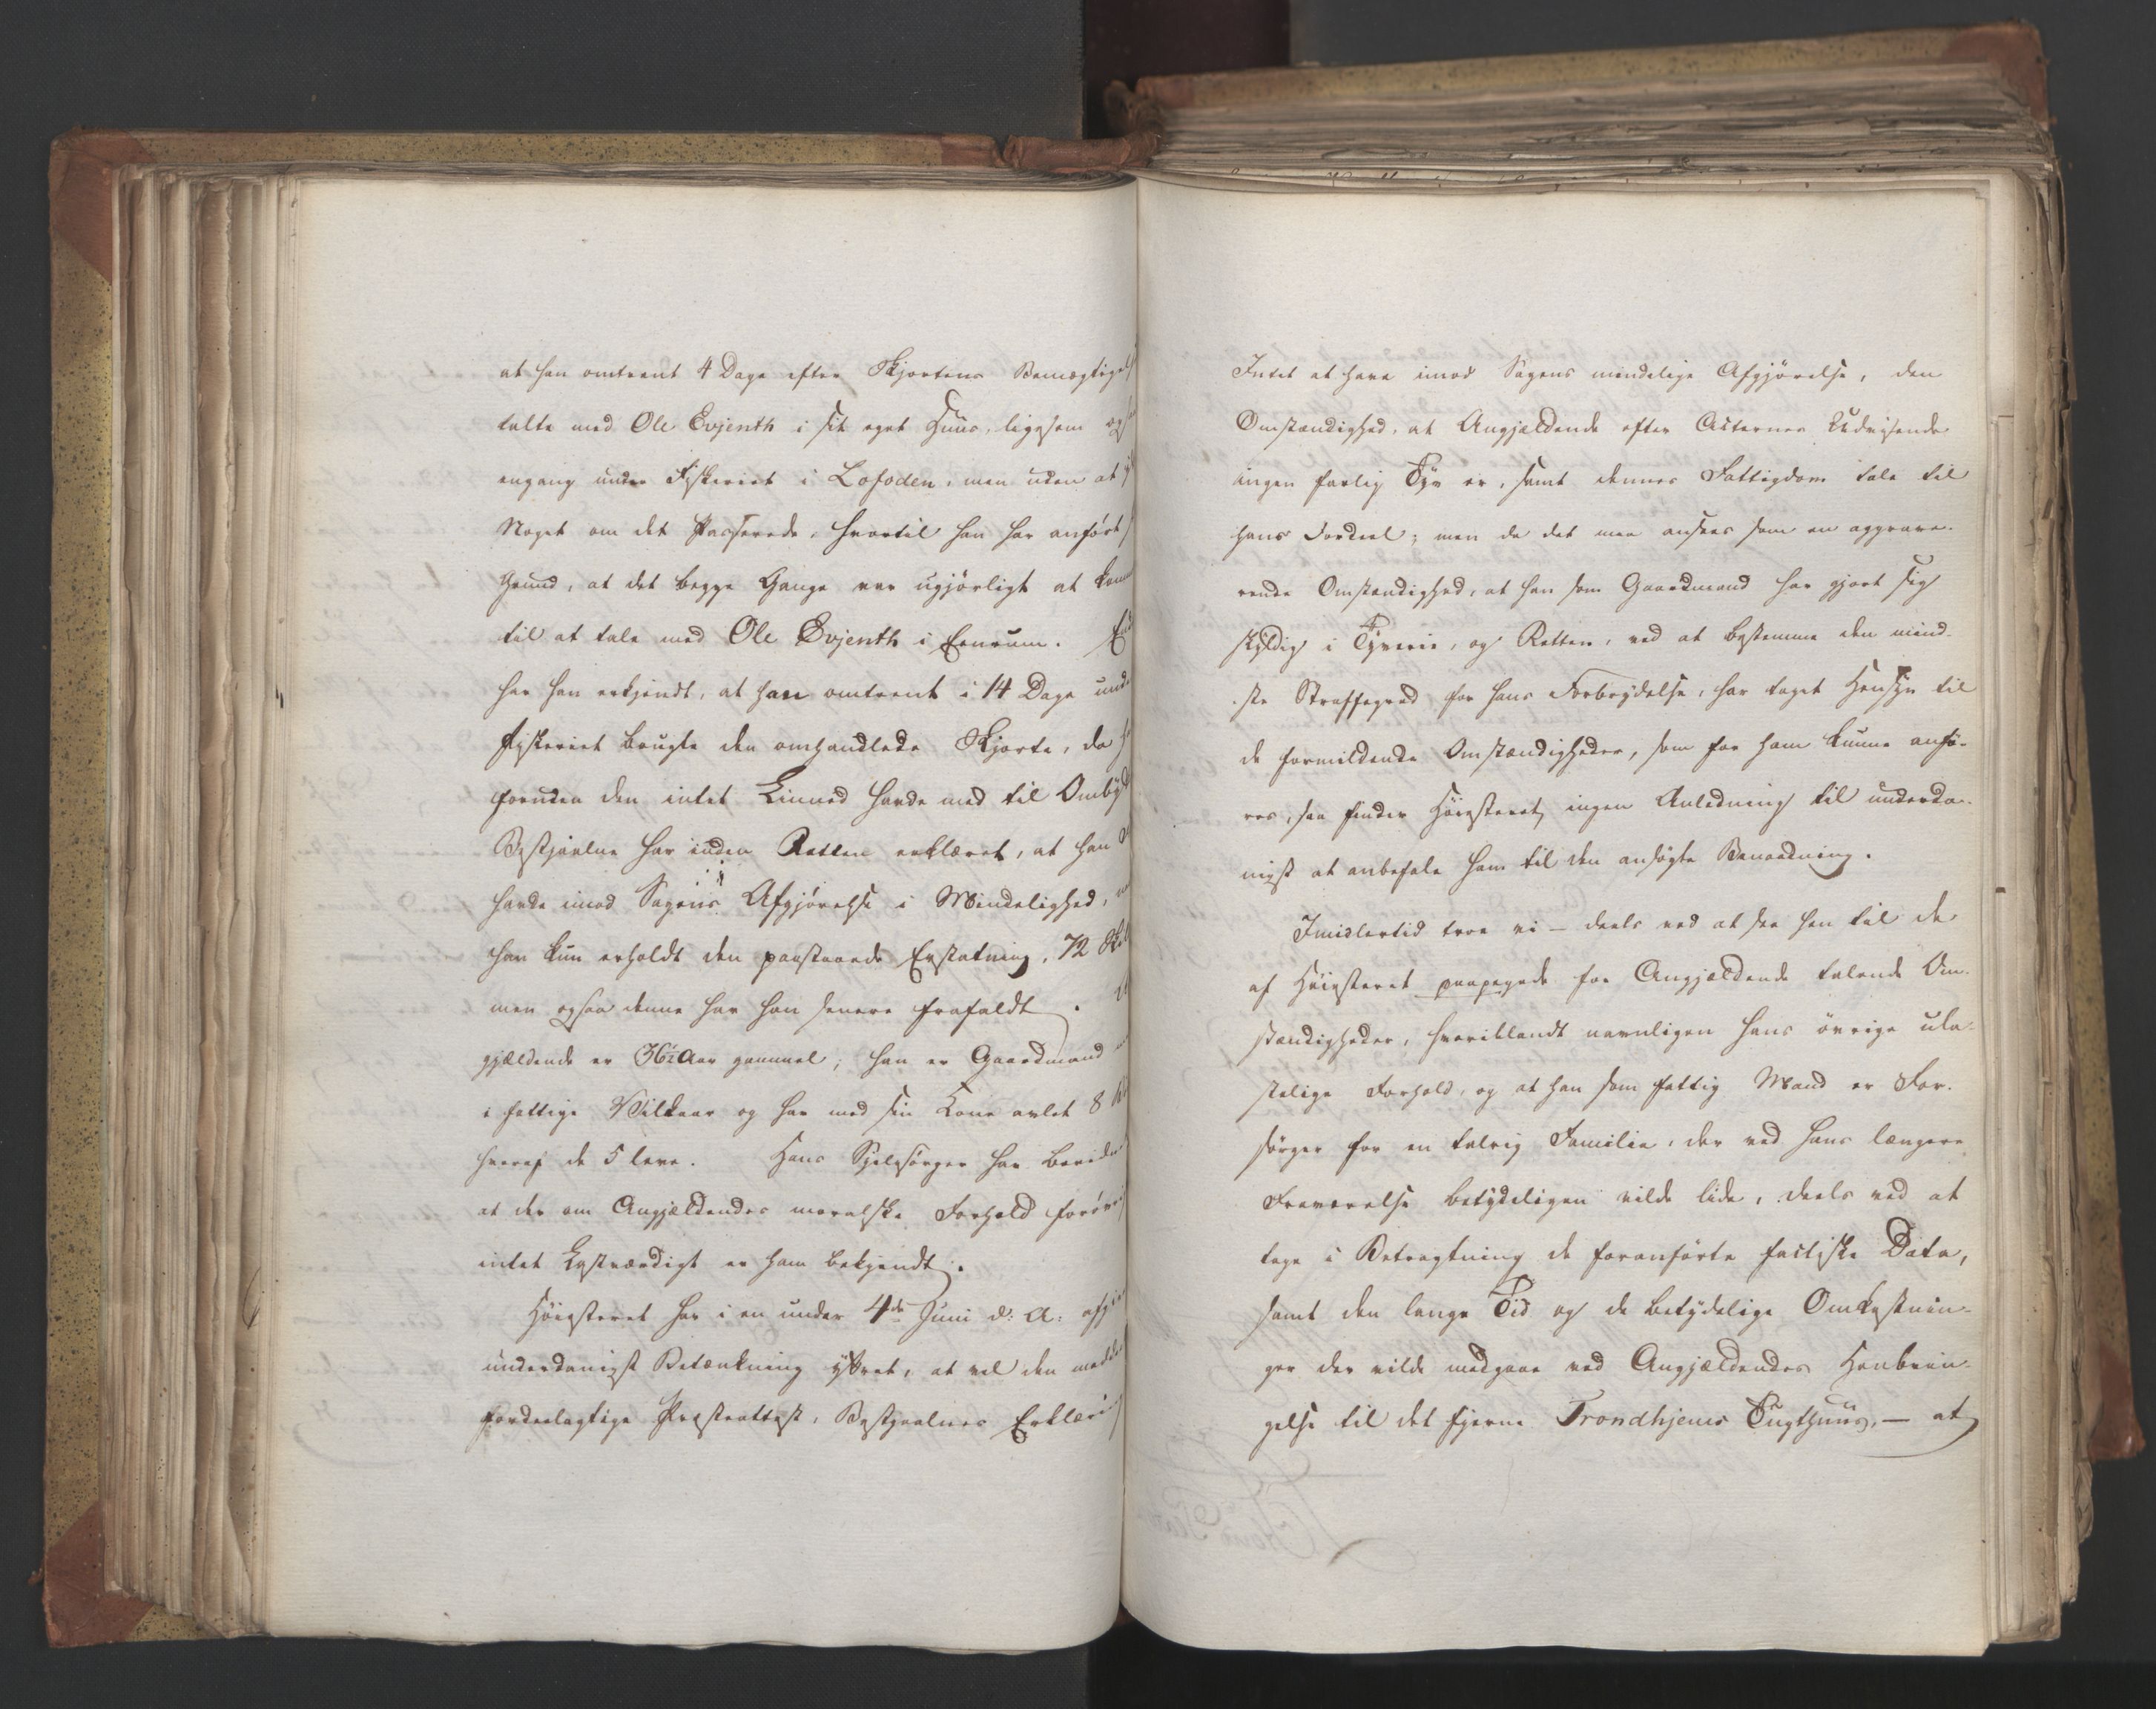 at han omtrent 4 Dage efter Skjortens Bemægtigels
talte med Ole Evjenth i sit eget Huus, ligesom og
engang under Fiskeriet i Lofoden, men uden at
Noget om det Passerede, hvortil han har anført
Grund, at det begge Gange var ugjørligt at kom
til at tale med Ole Evjenth i Eenrum. End
har han erkjendt, at han omtrent i 14 Dage unde
Fiskeriet brugte den omhandlede Skjorte, da h
foruden den intet Linned havde med til Ombyt
Bestjaalne har inden Retten erklæret, at han
havde imod Sagens Afgjørelse i Mindelighed,
han kun erholdt den paastaaede Erstatning, 72 Skil
men ogsaa denne har han senere frafaldt.
gjældende er 36½ Aar gammel; han er Gaardmand
i fattige Vilkaar og har med sin Kone avlet 8
hvoraf de 5 leve. Hans Sjelesørger har bevidn
at der om Angjældendes moralske Forhold forøvri
intet Lastværdigt er ham bekjendt.
Høiesteret har i en under 4de Juni d: A: afgi
underdanigst Betænkning yttret, at vel den meddel
fordeelagtige Præsteattest, Bestjaalnes Erklæri
Intet at have imod Sagens mindelige Afgjørelse, den
Omstændighed, at Angjældende efter Acternes Udvisende
ingen farlig Tyv er, samt dennes Fattigdom tale til
hans Fordeel; men da det maa ansees som en aggrave-
rende Omstændighed, at han som Gaardmand har gjort sig
skyldig i Tyverie, og Retten, ved at bestemme den mind-
ste Straffegrad for hans Forbrydelse, har taget Hensyn til
de formildende Omstændigheder, som for ham kunne anfø-
res, saa finder Høiesteret ingen Anledning til underda-
nigst at anbefale ham til den ansøgte Benaadning.
Imidlertid troe vi – deels ved at see hen til de
af Høiesteret paapegede for Angjældende talende Om-
stændigheder, hvoriblandt navnligen hans øvrige ula-
stelige Forhold, og at han som fattig Mand er For-
sørger for en talrig Familie, der ved hans længere
Fraværelse betydeligen vilde lide, deels ved at
tage i Betragtning de foranførte factiske Data,
samt den lange Tid og de betydelige Omkostnin-
ger der vilde medgaae ved Angjældendes Henbrin-
gelse til det fjerne Trondhjems Tugthuus, – at